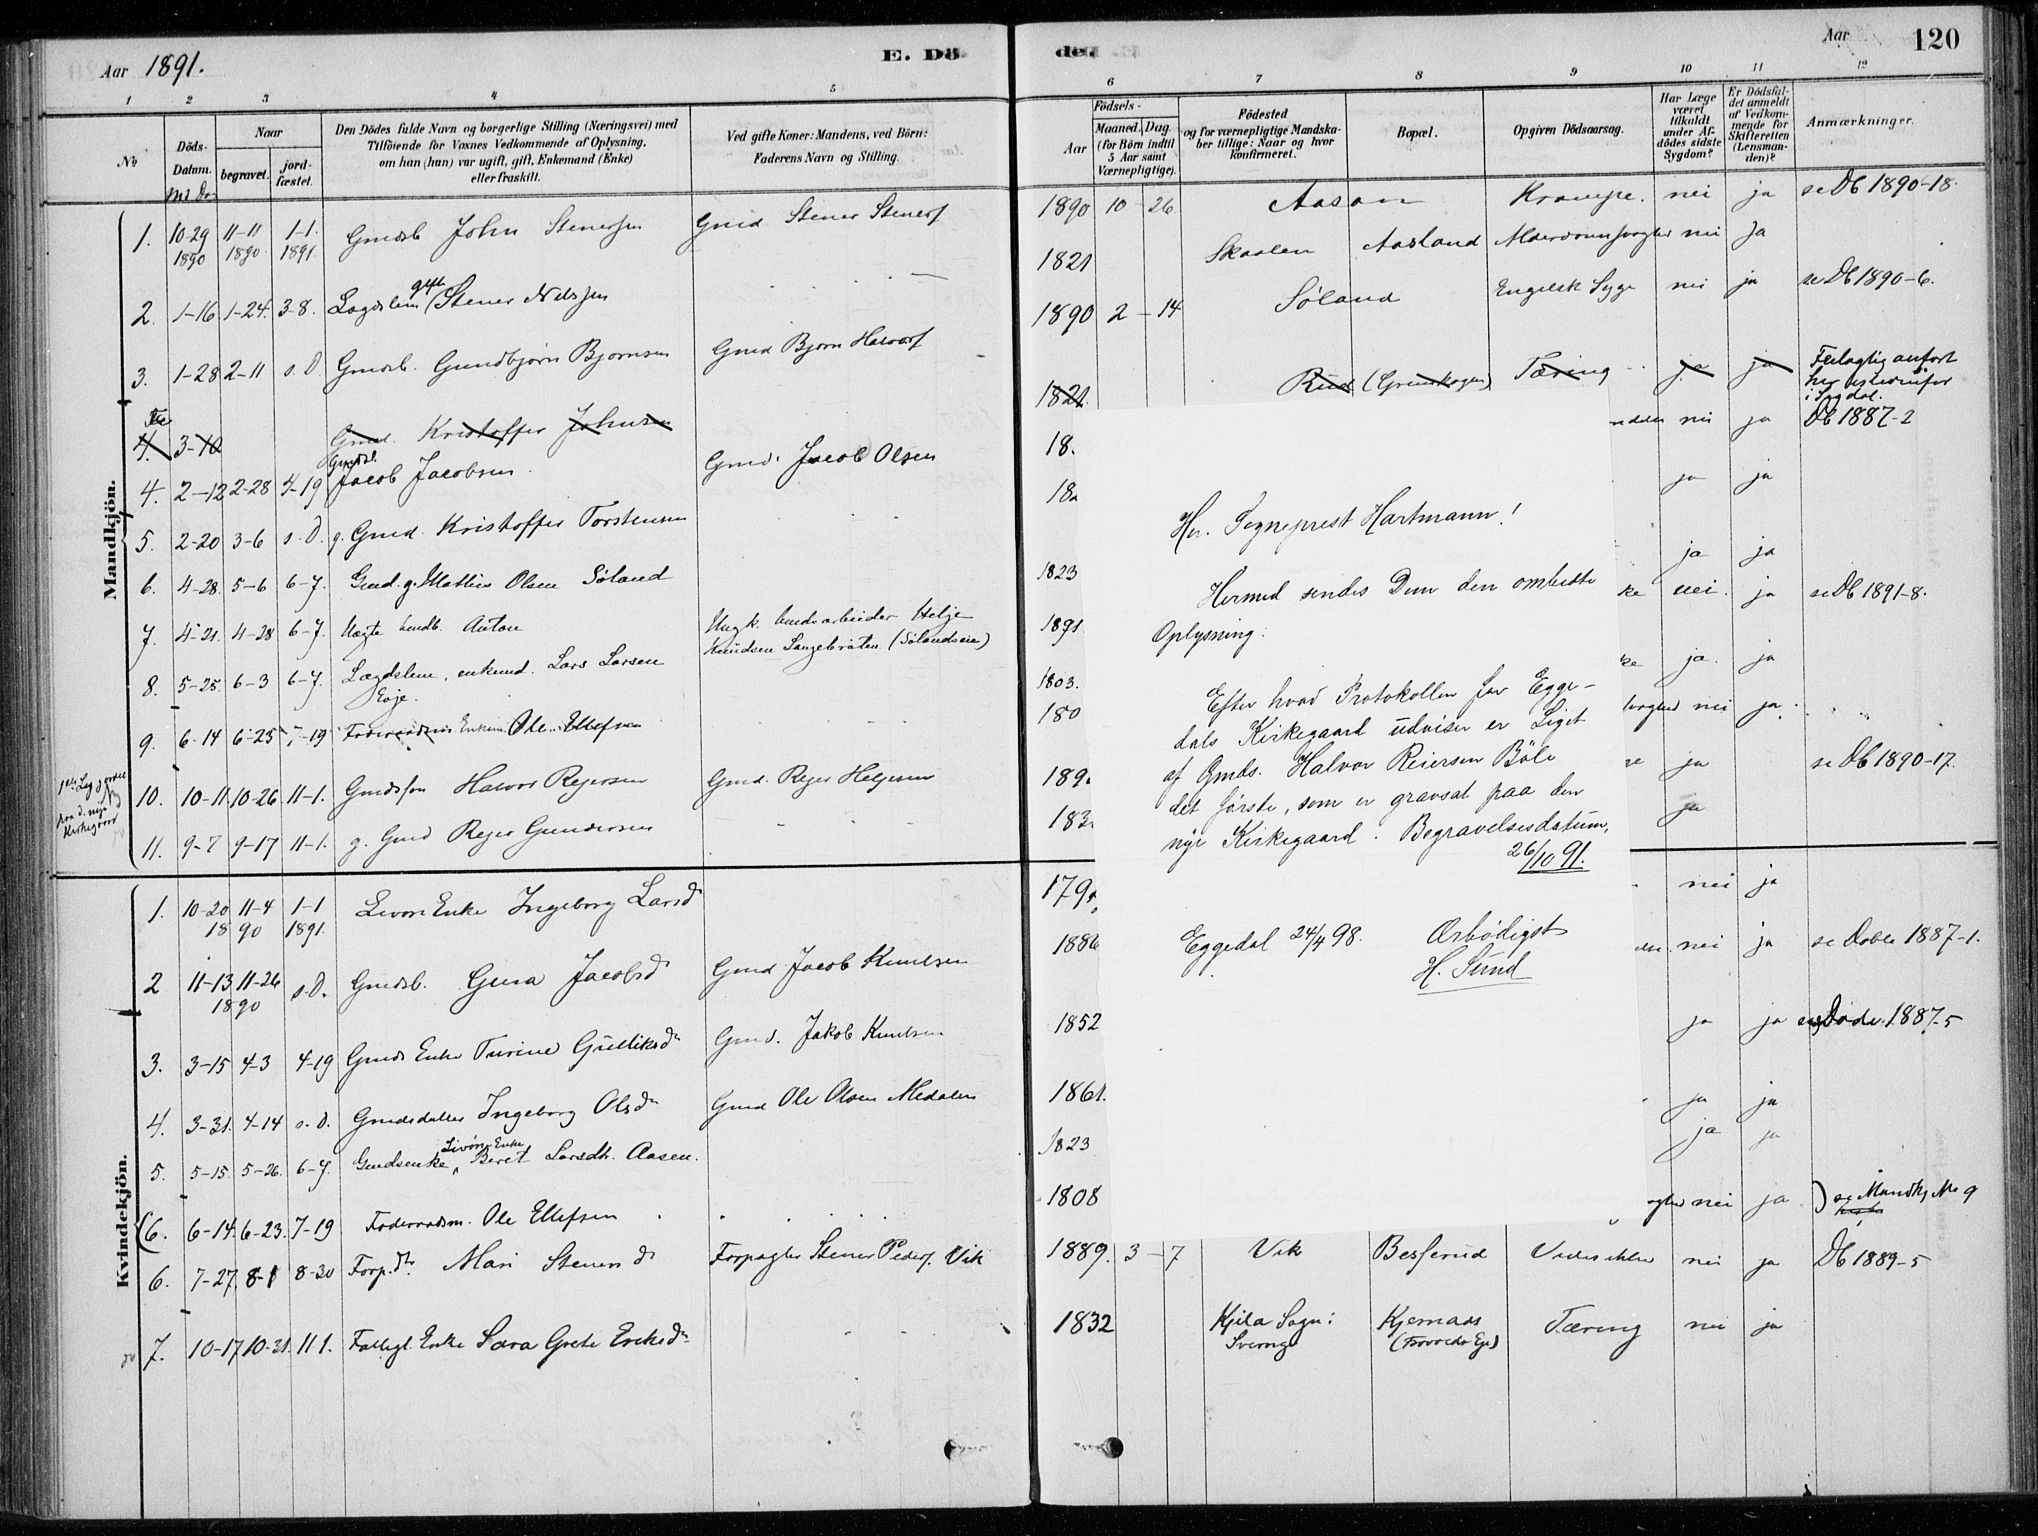 Aar 1891.
E. Dö
den
Aar
120
1 2 3 4 5
6 7 8 9 10 11 12
No
Döds-
Datum.
Md Da
Naar
begravet.
jord-
fæstet.
Den Dödes fulde Navn og borgerlige Stilling (Næringsvei) med
Tilföiende for Voxnes Vedkommende af Oplysning,
om han (hun) var ugift, gift, Enkemand (Enke)
eller fraskilt.
Ved gifte Koner: Mandens, ved Börn:
Faderens Navn og Stilling.
Födsels-
Aar
Maaned. Dag.
(for Börn indtil
5 Aar samt
Værnepligtige).
Födested
og for værnepligtige Mandska-
ber tillige: Naar og hvor
konfirmeret.
Bopæl.
Opgiven Dödsaarsag.
Har Læge
været
tilkaldt
under Af-
dödes sidste
Sygdom?
Er Dödsfal-
det anmeldt
af Vedkom-
mende for
Skifteretten
(Lensman-
den)?
Anmærkninger.
Mandkjön.
1. 10-29 1890 11-11 1890 1-1. 1891 Gmdsb John Stenersen Gmd Stener Stenersf 1890 10-26 Aasan Krampe. nei ja se Db 1890-18.
2. 1-16 1-24. 3-8. Lægdslem gift Stener Nilssen 1821 Skaalen Aasland nei ja
3. 1-28 2-11 s. D Gmdsb. Gundbjørn Bjørnsen Gmd Bjørn Halvorsf 1890 2-14 Søland Engelsk Syge nei ja se Db 1890-6.
4. 3-10 Gmd. Kristoffer Johnsen 1821. Rud Tæring ja ja Feilagtig anført
her
i Sigdal.
4. 2-12 2-28 4-19 Gmdsb. Jacob Jacobsen Gmd. Jacob Olsen 18 nei ja Db 1887-2
5. 2-20 3-6 s. D. g. Gmd. Kristoffer Torstensen 18 ja ja
6. 4-28. 5-6 6-7. Gmd. g. Mathias Olsen Søland 1823 ja ja
7. 4-21. 4-28 6-7. Uægte hmdb. Anton Ungk. husarbeider Helge
Knudsen Langebråten (Sølandseie) 1891 ke nei. ja se Db 1891-8.
8. 5-25. 6-3 6-7. Lægdslem, enkemd. Lars Larsen
Eoje. 1803. ke ja. ja
9. 6-14 6-23 7-19 Foderaadsm Enkem. Ole Ellefsen 180 nei ja.
1ste Lig
paa d. nye
Kirkegaard
10. 10-11. 10-26 11-1. Gmdssøn Halvor Rejersen Gmd. Rejer Helgesen 189 se ja se Db 1890-17.
11. 9-7 9-17 11-1. g. Gmd Rejer Gundersen 183 ja
Hr. Sogneprest Hartmann!
Hermed sendes Dem den ombedte
Oplysning:
Efter hvad Protokollen for Egge-
dals Kirkegaard udviser er Liget
af Gmds. Halvor Reiersen Böle
det første, som er gravsat paa den
nye Kirkegaard. Begravelsesdatum,
26/10 91.
Eggedal 24/4 98.
Ærbødigst
H. Sund
Kvindekjön.
1. 10-20 11-4 1890 1-1 1891. Livøre Enke Ingeborg Larsd 179 nei ja
2 11-13 11-26 1890 s. D. Gmdsb. Gura Jacobsd Gmd Jacob Knudsen 1886 nei ja se Døbte 1887-1.
3. 3-15 4-3 4-19 Gmds Enke Turine Gulliksdr Gmd. Jakob Knudsen 1852 ja ja 1887-5
4. 3-31. 4-14 s. D. Gmdsdatter Ingeborg Olsdr Gmd Ole Olsen Medalen 1861. ja ja
5. 5-15. 5-26. 6-7. Gmdsenke Livøre Enke Beret Larsdtr. Aasen. 1823 ja ja
(6. 6-14. 6-23. 7-19 Foderaadsm. Ole Ellefsen 1808 nei ja ) se Mandkj No 9
6. 7-27. 8-1 8-30 Forp.dr. Mari Stenersd Forpagter Stener Pedersf. Vik 1889. 3-7 Vik Besserud nei ja Db 1889-5
7. 10-17 10-21. 11 1. Fattigl. Enke Sara Grete Eriksdr 1832 Kjila Sogn: Sverrig Kjernaas Tæring nei ja